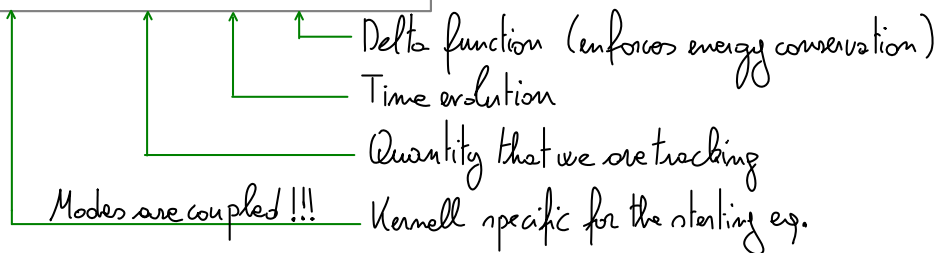 Delta function (enforces energy conservation)
Time evolution
Quantity that we are tracking
Modes are coupled !!! Kernell specific for the starting eq.